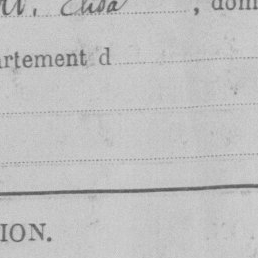 Elisa , dom
artement d
ION.